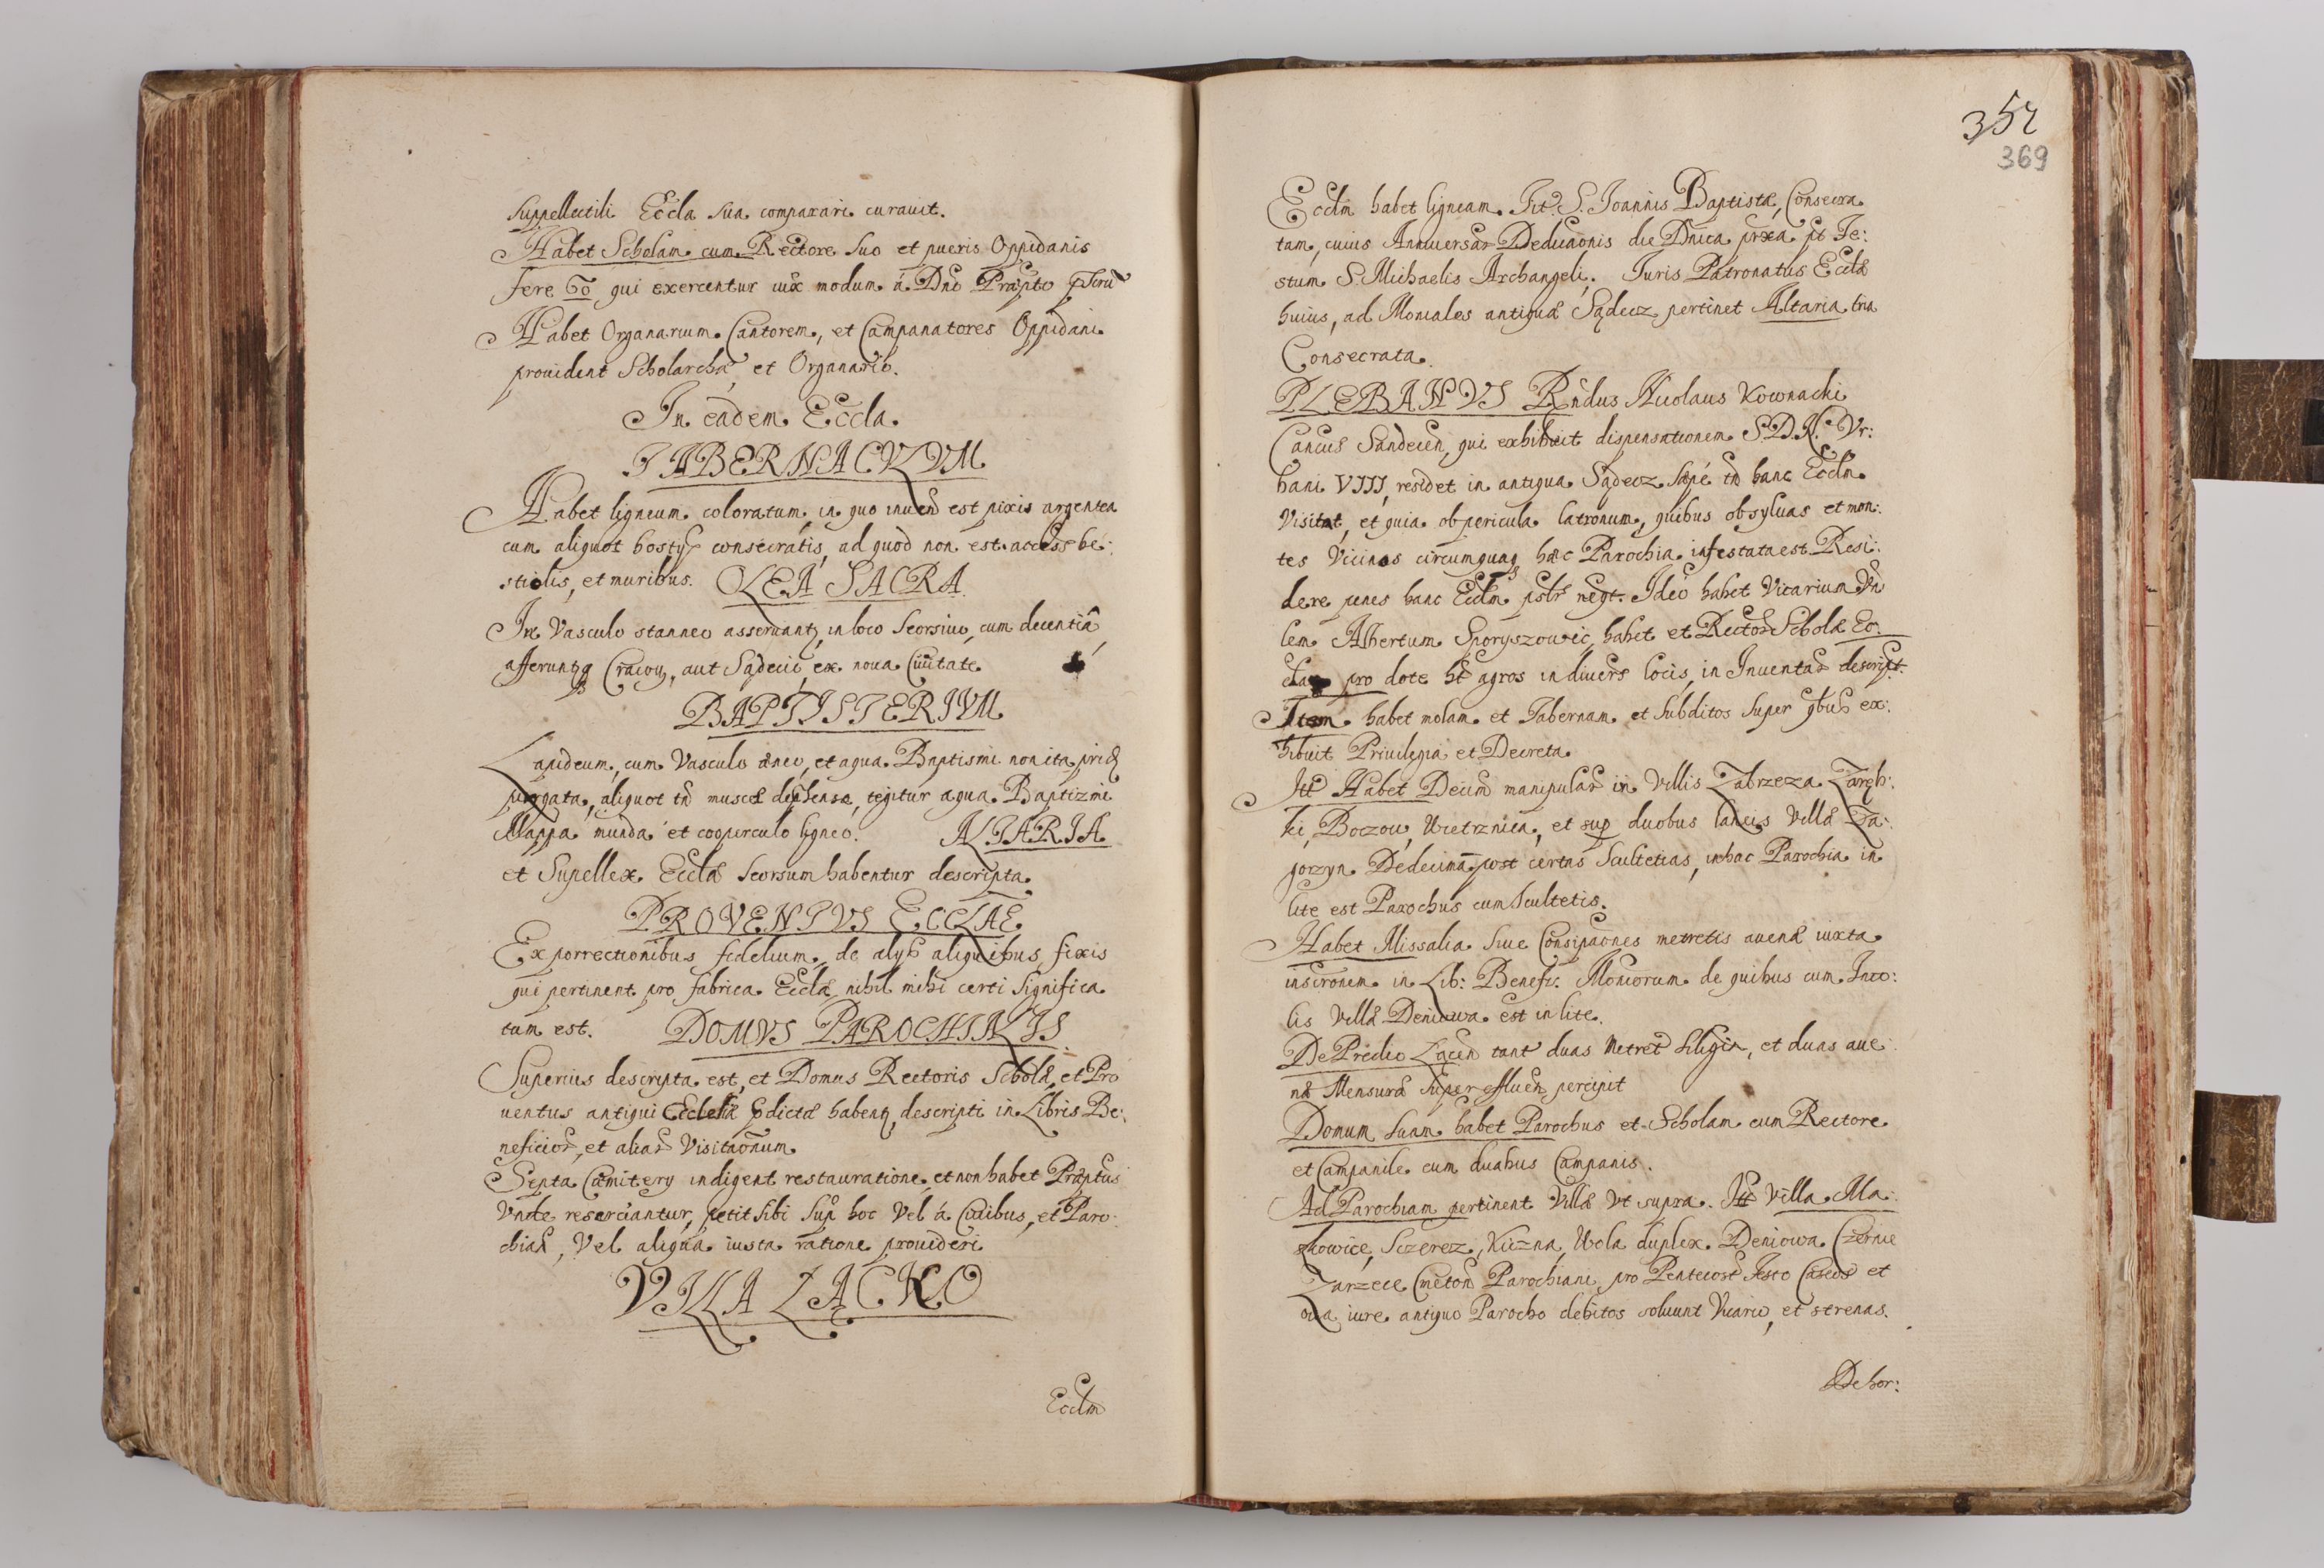 suppellectili Eccla sua comparari curauit.
Habet Scholam cum Rectore suo et pueris Oppidanis
fere 60 qui exercentur iux modum á Dno Præpto
Habet Organarium Cantorem, et Campanatores Oppidani
prouident Scholarchæ, et Organario.
In eadem Eccla
TABERNACVLVM
Habet ligneum coloratum in quo inuen est pixis argentea
cum aliquot hostijs consecratis, ad quod non est access be:
stiolis, et muribus. OLEA SACRA
In Vasculo stanneo asseruantur in loco seorsiuo, cum decentiâ
afferunturq Cracou, aut Sądecii ex noua Ciuitate
BAPTISTERIVM
Lapideum, cum Vasculo æneo, et aqua Baptismi non ita prid
purgata, aliquot tn muscæ tegitur aqua Baptizmi
Mappa munda et cooperculo ligneo. ALTARIA
et Supellex Ecclæ seorsum habentur descripta
PROVENTVS ECCLAE
Ex porrectionibus fidelium, de alys aliquibus fixis
qui pertinent pro fabrica Ecclæ nihil mihi certi significa
tum est. DOMVS PAROCHIALIS
Superius descripta est, et Domus Rectoris Scholæ, et Pro
uentus antiqui Ecclesiæ pdictæ habentur descripti in Libris Be:
neficior, et aliar Visitaonum
Septa Cæmitery indigent restauratione, et non habet Præptus
Vnde resarciantur, petit sibi sup hoc Vel á Ciuibus, et Paro:
chia, Vel aliqua iusta ratione prouideri
VILLA LACKO
Ecclm
352
369
Ecclm habet ligneam Tit: S. Joannis Baptistæ, Consecra
tam, cuius Anniuersar Dedicaonis die Dnica prxa pt Fe:
stum S. Michaelis Archangeli. Juris Patronatus Ecclæ
huius, ad Moniales antiquæ Sądecz pertinet Altaria tria
Consecrata.
PLEBANVS Rndus Nicolaus Kownacki
Cancus Sandecen, qui exhibuit dispensationem S.D.N. Vr:
bani VIII, residet in antiqua Sądecz sæpé tn hanc Ecclm
Visitat, et quia ob pericula latronum, quibus ob syluas et mon:
tes Vicinos circumquaq hæc Parochia infestata est Resi:
dere penes hanc Ecclm pstr neqt. Ideo habet Vicarium Vn
lem Albertum Sporyszowic, habet et Rector Scholæ Ec:
clæ pro dote ht agros in diuers locis, in Inuentar descript.
Item habet molam et Tabernam et subditos super qbus ex:
hibuit Priuilegia et Decreta
Itt Habet Decim manipular in Villis Zabrzeza Zaręb:
ki, Boczou, Wietrznica, et sup duobus laneis Villæ Za:
gorzyn Dedecima post certas Scultetias, in hac Parochia in
lite est Parochus cum Scultetis.
Habet Missalia siue Consipaones metretis auenæ iuxta
inscronem in Lib: Benefi. Moniorum de quibus cum Inco:
lis Villæ Deniowa est in lite.
De Prædio Lącen tant duas Metret siligin, et duas aue
næ Mensuræ superaffluen percipit
Domum suam habet Parochus et Scholam cum Rectore
et Campanile cum duabus Campanis.
Ad Parochiam pertinent Villæ Vt supra. Itt Villa Ma:
szkowice, Sczerez, Kiczna, Wola duplex Deniowa Czernie
Zarzece Cmeton Parochiani pro Pentecost Festo Caseos et
oua iure antiquo Parocho debitos soluunt Vicario, et strenas.
De hor: